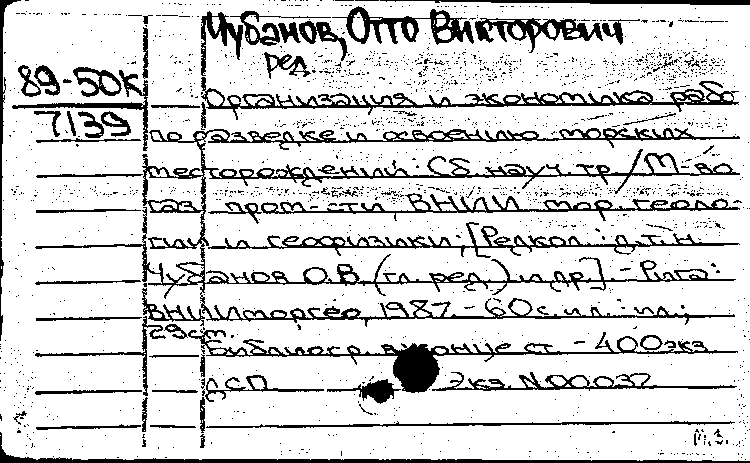 Чубанов, Отто Викторович
ред.
89-50К
7139
Организация и экономика рабо
по разведке и освоению морских
месторождений: Сб. науч. тр / М-во
газ. пром-сти, ВНИИ мор. геоло-
гии и геофизики; [Редкол.: д.т.н.
Чубанов О.В. (гл. ред.) и др.]. - Рига:
ВНИИморгео, 1987. - 60с. ил. : ил.;
29см.
Библиогр. в конце ст. - 400экз.
ДСП Экз. N00037
М.З.